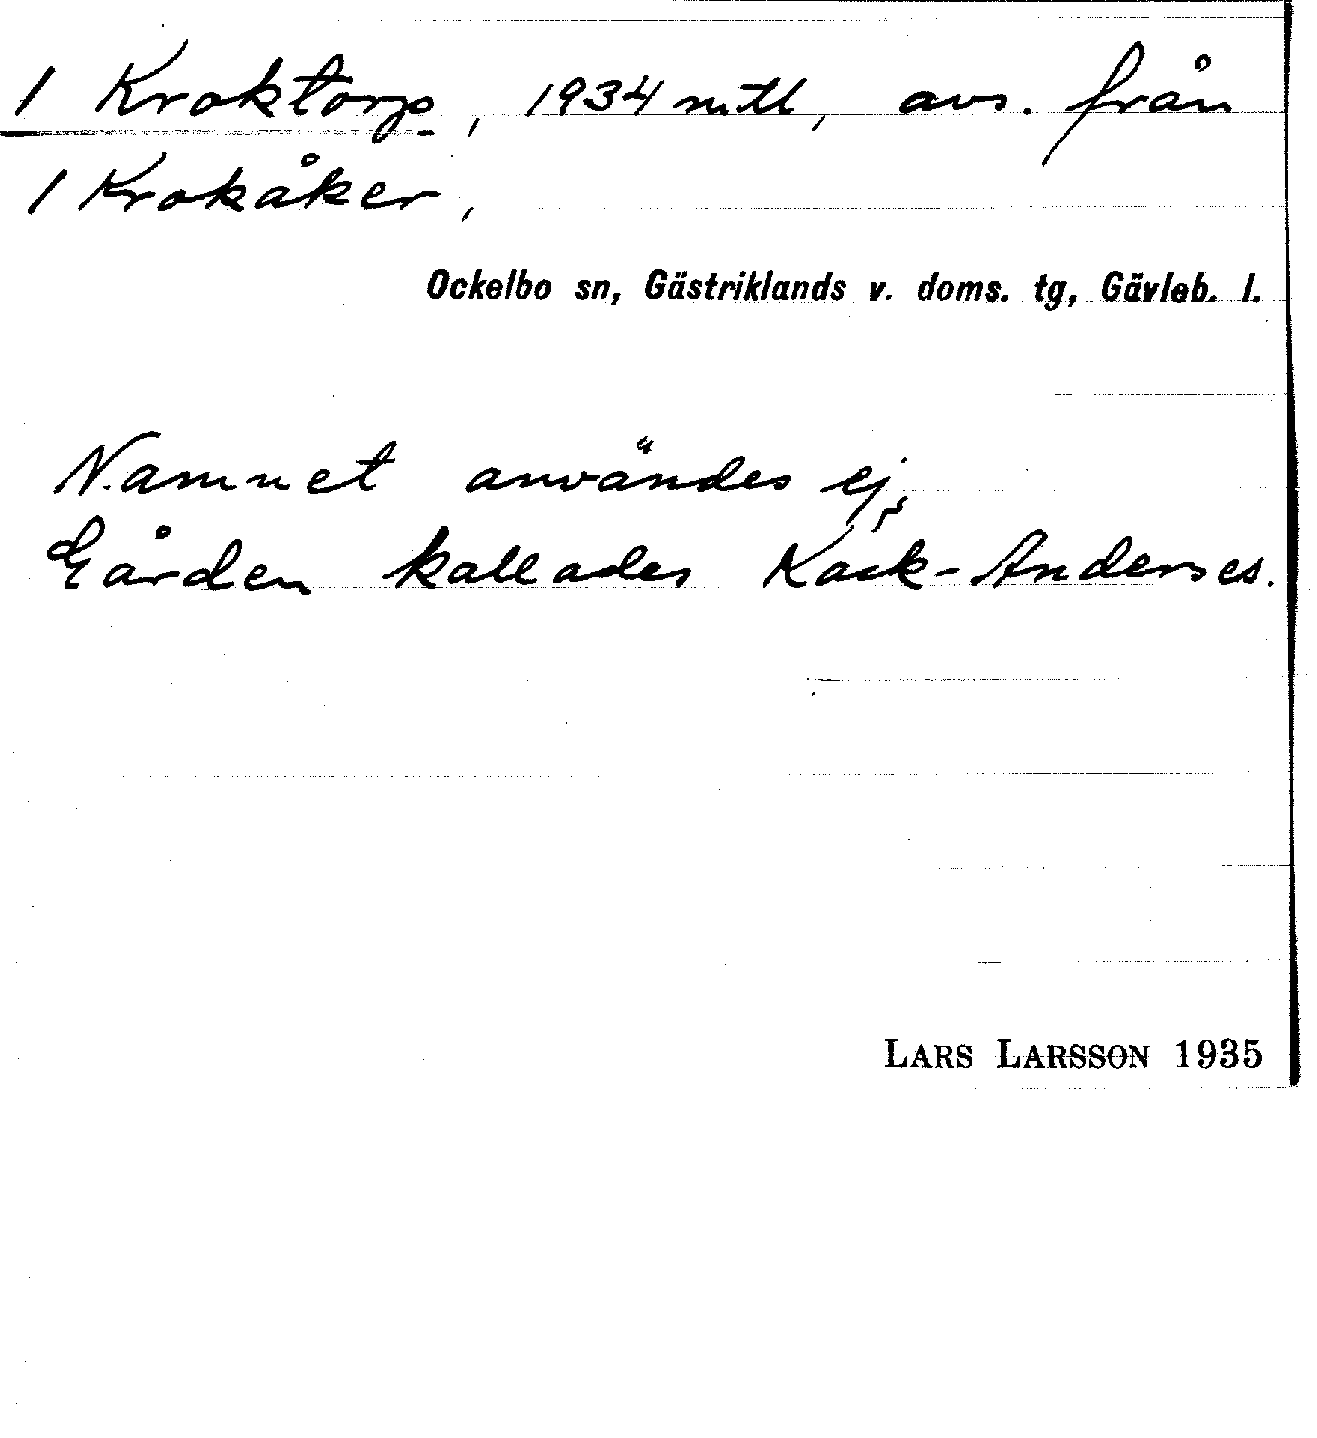 1 Kroktorp, 1934 mtl, avs. från
1 Krokåker,
Ockelbo sn, Gästriklands v. doms. tg, Gävleb. l.
Namnet användes ej,
Gården kallades Kack-Anderses.
LARS LARSSON 1935